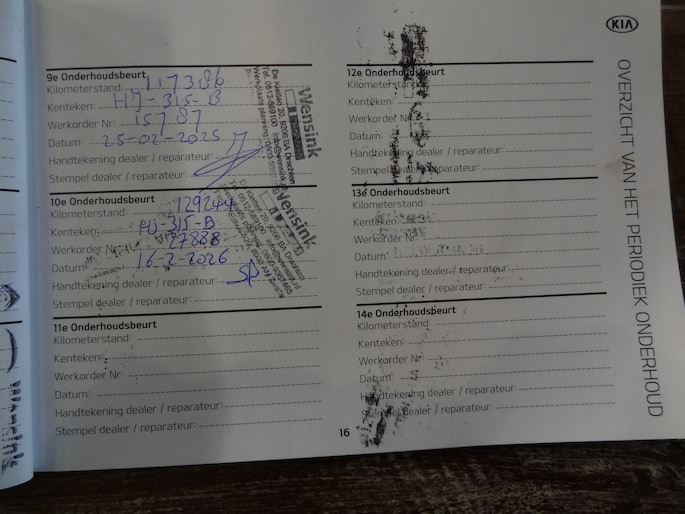 KIA
OVERZICHT VAN HET PERIODIEK ONDERHOUD
9e Onderhoudsbeurt
Kilometerstand: 117386
Kenteken: HJ-315-B
Werkorder Nr: 15787
Datum: 25-02-2025
Handtekening dealer / reparateur:
Stempel dealer / reparateur:
Wensink
De Kletsel 20, 9206 BA Drachten
Tel. 0512-569100
10e Onderhoudsbeurt
Kilometerstand: 129244
Kenteken: HJ-315-B
Werkorder Nr: 27888
Datum: 16-2-2026
Handtekening dealer / reparateur:
Stempel dealer / reparateur:
Wensink
11e Onderhoudsbeurt
Kilometerstand:
Kenteken:
Werkorder Nr:
Datum:
Handtekening dealer / reparateur:
Stempel dealer / reparateur:
12e Onderhoudsbeurt
Kilometerstand:
Kenteken:
Werkorder Nr:
Datum:
Handtekening dealer / reparateur:
Stempel dealer / reparateur:
13e Onderhoudsbeurt
Kilometerstand:
Kenteken:
Werkorder Nr:
Datum:
Handtekening dealer / reparateur:
Stempel dealer / reparateur:
14e Onderhoudsbeurt
Kilometerstand:
Kenteken:
Werkorder Nr:
Datum:
Handtekening dealer / reparateur:
Stempel dealer / reparateur:
16
Wensink